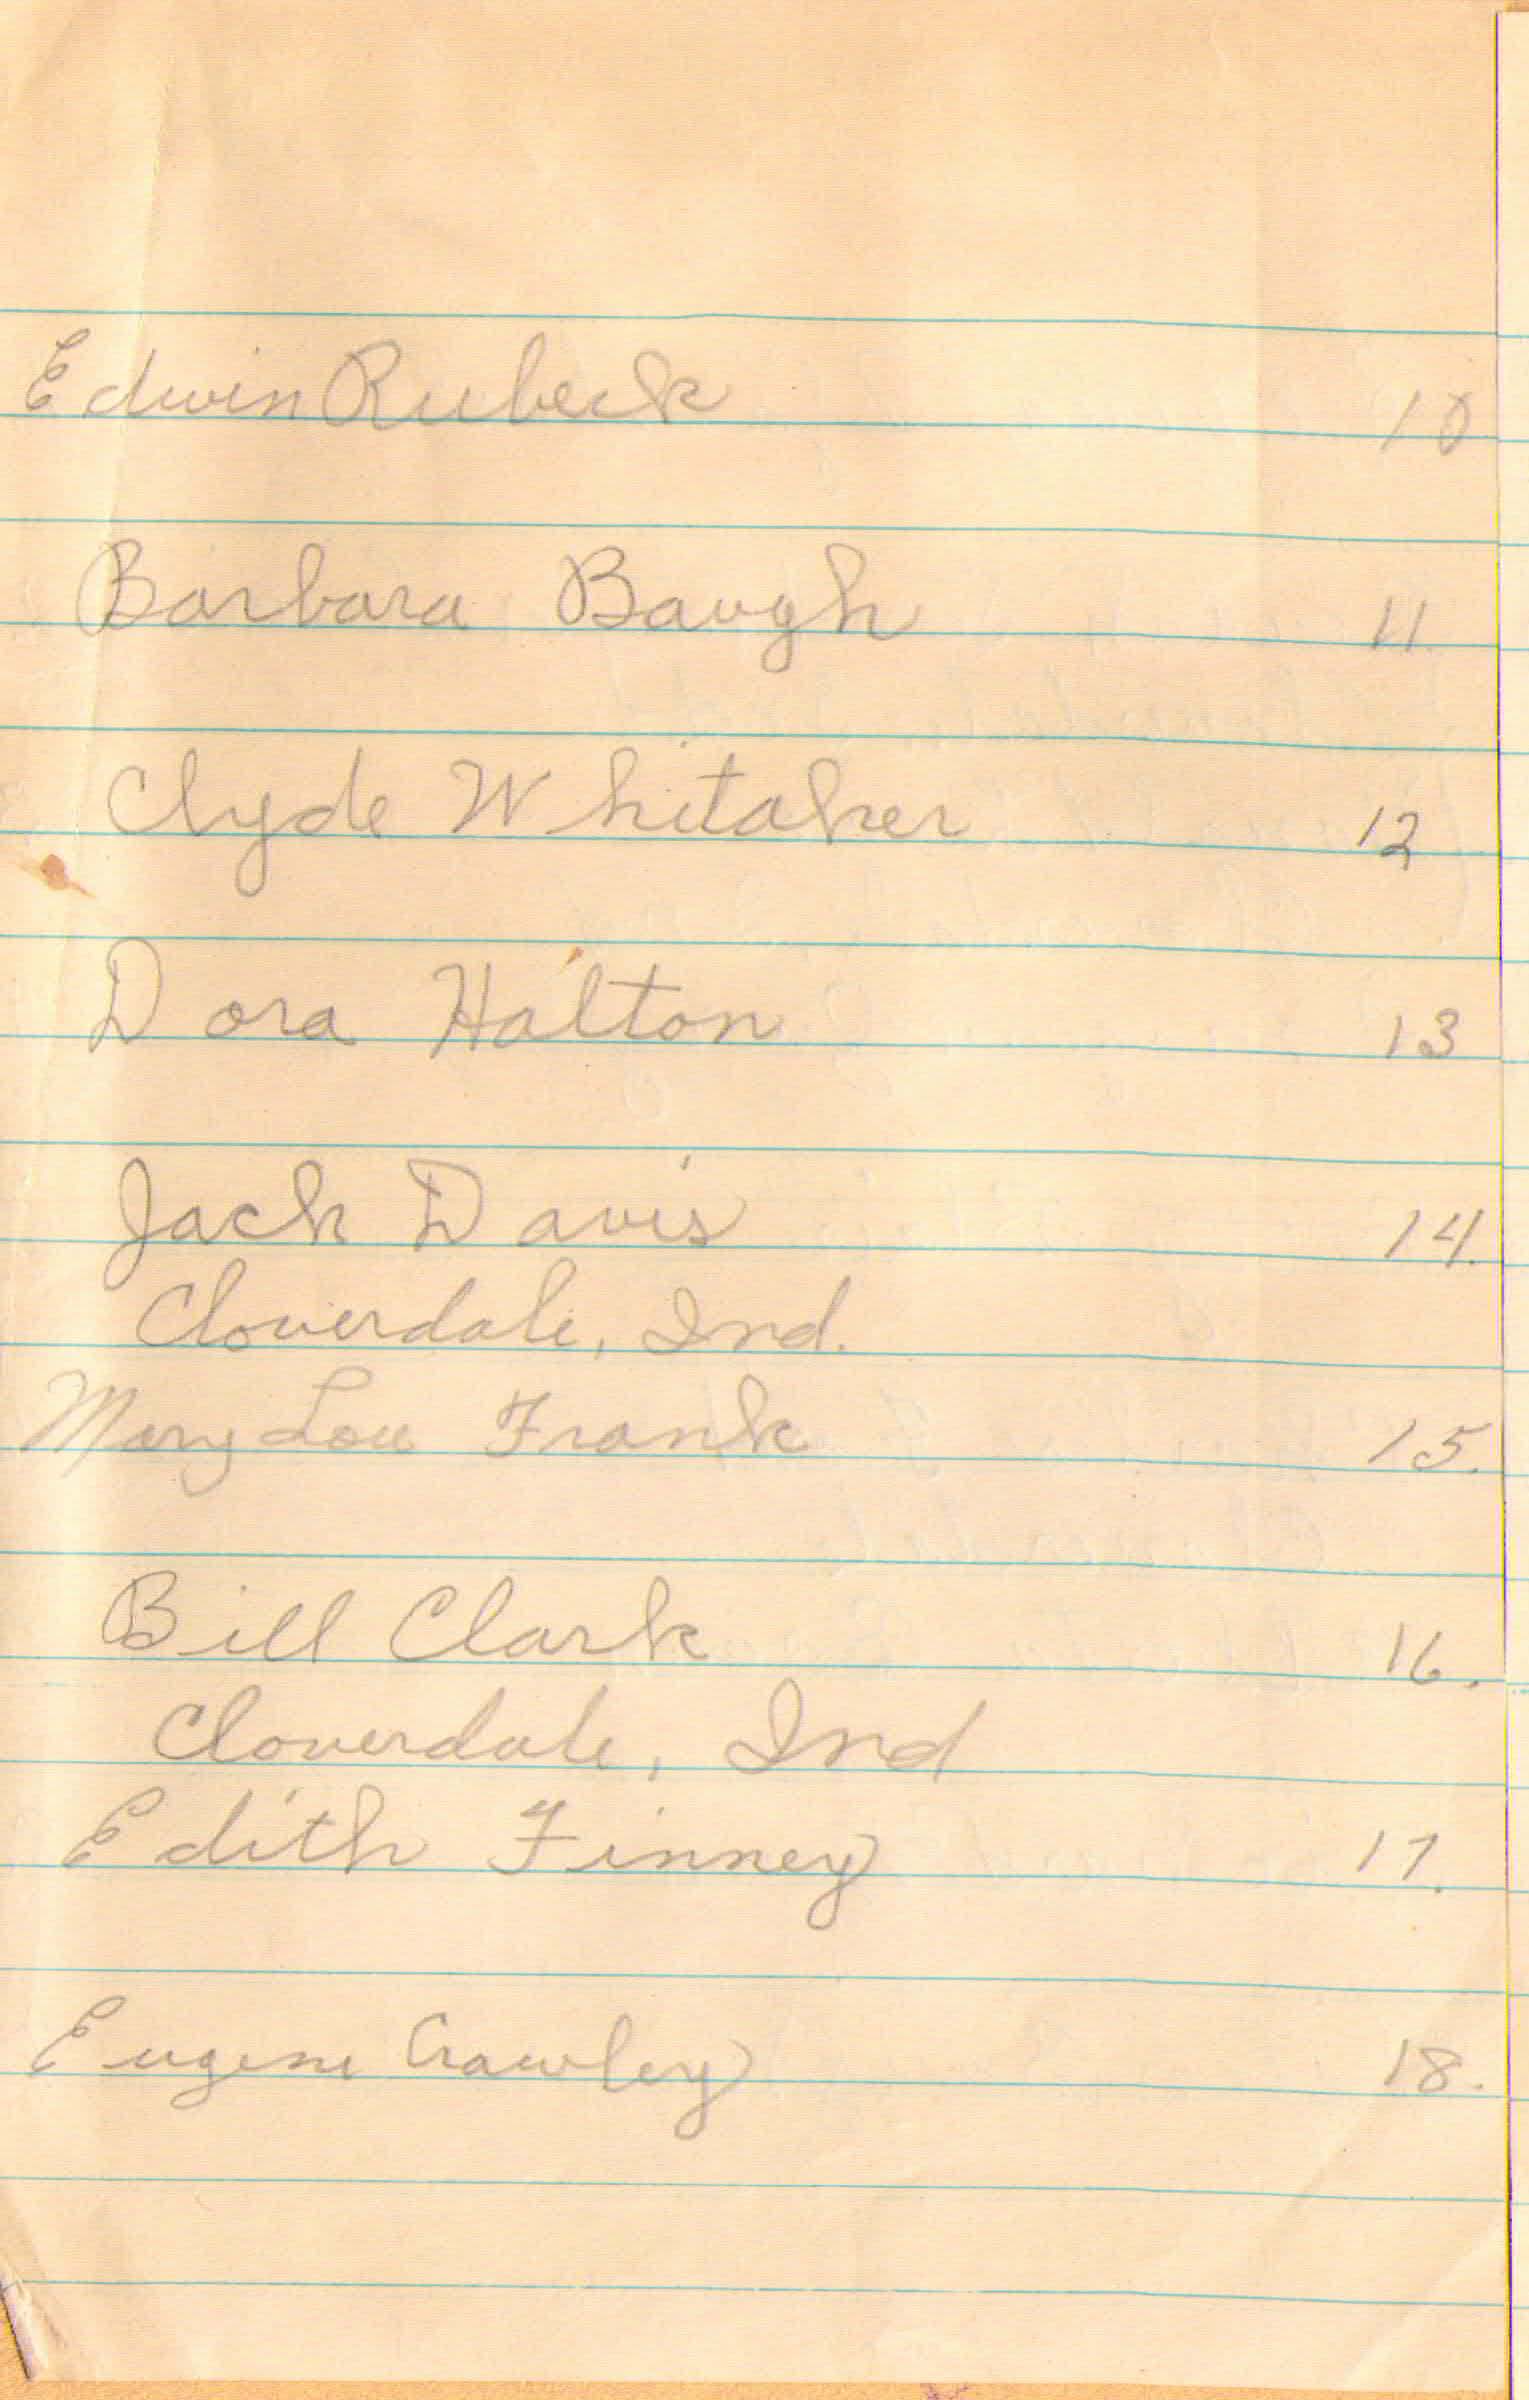 Edwin Rubeck 10
Barbara Baugh 11.
Clyde Whitaker 12
Dora Halton 13
Jack Davis 14.
Cloverdale, Ind.
Mary Lou Frank 15.
Bill Clark 16.
Cloverdale, Ind
Edith Finney 17.
Eugene Crawley 18.